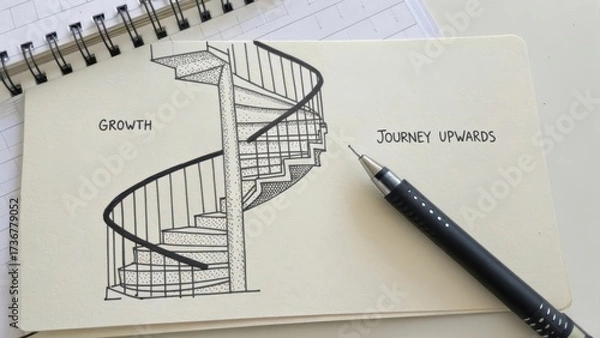 GROWTH
JOURNEY UPWARDS
Adobe Stock | #1736779052